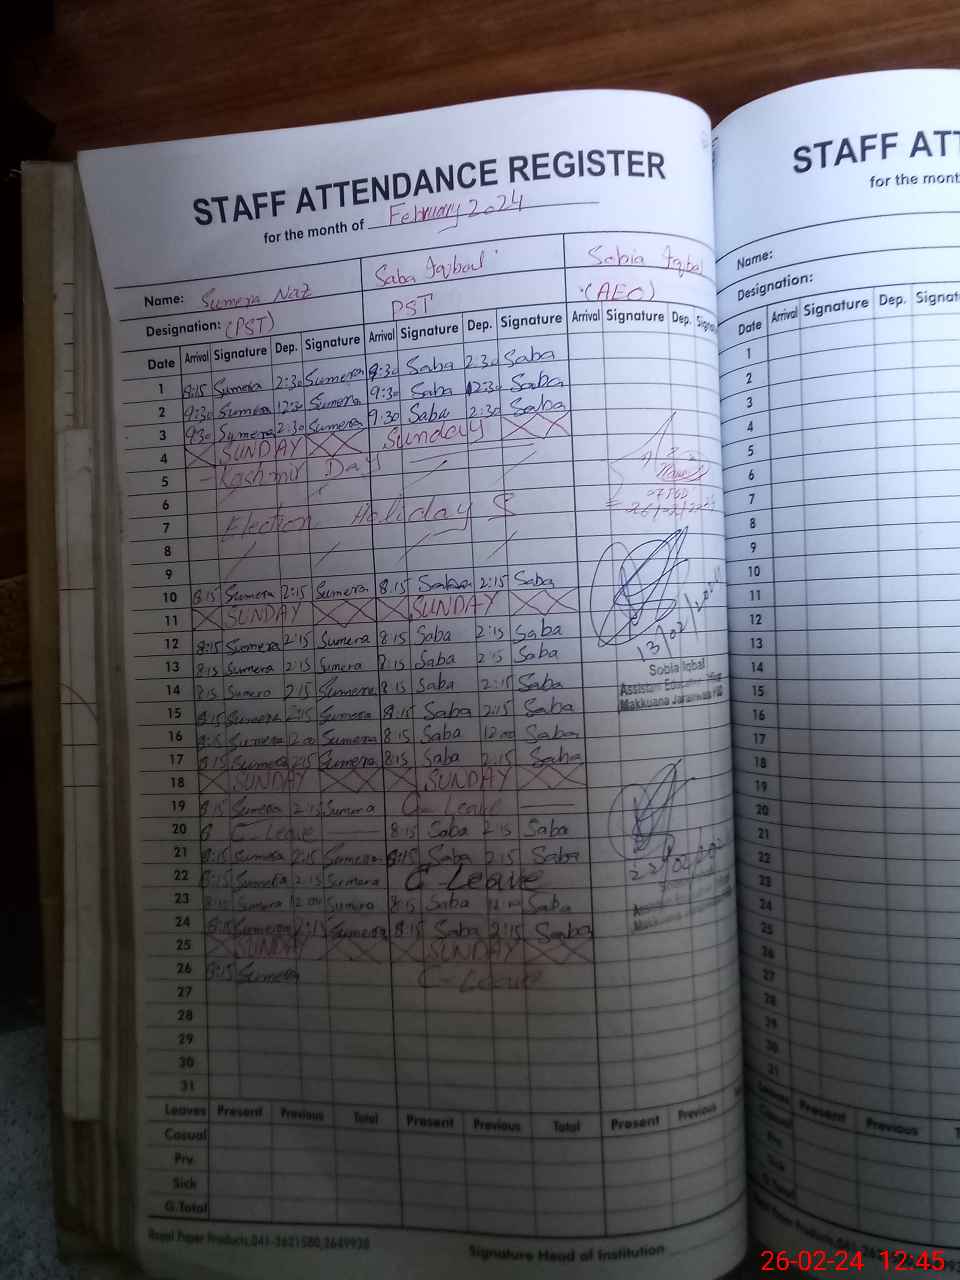 STAFF ATTENDANCE REGISTER
for the month of February 2024
Name: Sumera Naz Saba Iqbal Sobia Iqbal
Designation: (PST) PST (AEO)
Date Arrival Signature Dep. Signature Arrival Signature Dep. Signature Arrival Signature Dep. Signa
1 8:15 Sumera 2:30 Sumera 9:30 Saba 2:30 Saba
2 9:30 Sumera 12:30 Sumera 9:30 Saba 12:30 Saba
3 9:30 Sumera 2:30 Sumera 9:30 Saba 2:30 Saba
4 SUNDAY Sunday
5 Kashmir Day
6
7 Election Holidays
8
9
10 8:15 Sumera 2:15 Sumera 8:15 Saba 2:15 Saba
11 SUNDAY SUNDAY
12 8:15 Sumera 2:15 Sumera 8:15 Saba 2:15 Saba
13 8:15 Sumera 2:15 Sumera 8:15 Saba 2:15 Saba
14 8:15 Sumera 2:15 Sumera 8:15 Saba 2:15 Saba
15 8:15 Sumera 2:15 Sumera 8:15 Saba 2:15 Saba
16 8:15 Sumera 2:00 Sumera 8:15 Saba 12:00 Saba
17 8:15 Sumera 2:15 Sumera 8:15 Saba 2:15 Saba
18 SUNDAY SUNDAY
19 8:15 Sumera 2:15 Sumera C-Leave
20 8 C-Leave 8:15 Saba 2:15 Saba
21 8:15 Sumera 2:15 Sumera 8:15 Saba 2:15 Saba
22 8:15 Sumera 2:15 Sumera C-Leave
23 8:15 Sumera 12:00 Sumera 8:15 Saba 12:00 Saba
24 8:15 Sumera 2:15 Sumera 8:15 Saba 2:15 Saba
25 SUNDAY SUNDAY
26 8:15 Sumera C-Leave
27
28
29
30
31
13/02/
Sobia Iqbal
Assistant Education
Makkuana Jaranwala
22/02/202
Leaves Present Previous Total Present Previous Total Present Previous
Casual
Prv.
Sick
G.Total
Royal Paper Products,041-2621580,2649928
Signature Head of Institution
STAFF ATT
for the mont
Name:
Designation:
Date Arrival Signature Dep. Signat
1
2
3
4
5
6
7
8
9
10
11
12
13
14
15
16
17
18
19
20
21
22
23
24
25
26
27
28
29
30
31
Leaves Present Previous
Casual
Prv.
Sick
G.Total
26-02-24 12:45